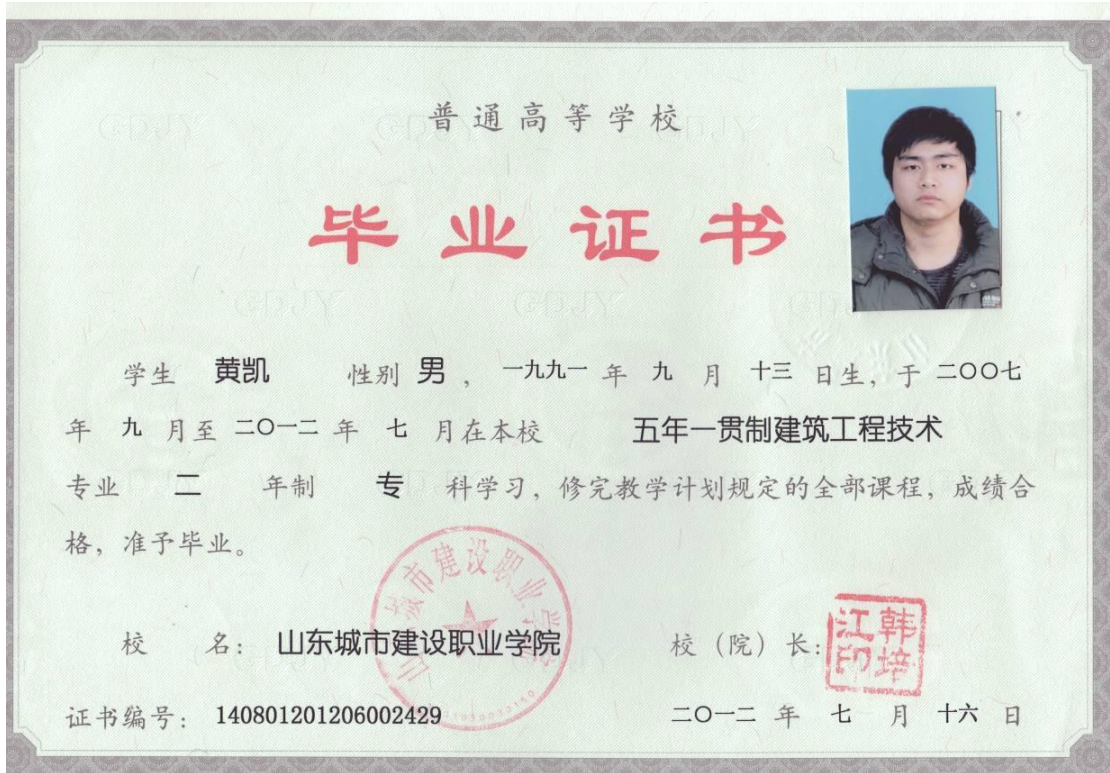 普通高等学校
毕业证书
学生 黄凯 性别 男 , 一九九一 年 九 月 十三 日生, 于 二〇〇七
年 九 月至 二〇一二 年 七 月在本校 五年一贯制建筑工程技术
专业 二 年制 专 科学习, 修完教学计划规定的全部课程, 成绩合
格, 准予毕业。
山东城市建设职业学院
校 名: 山东城市建设职业学院 校（院）长: 韩培江印
证书编号: 140801201206002429 二〇一二 年 七 月 十六 日